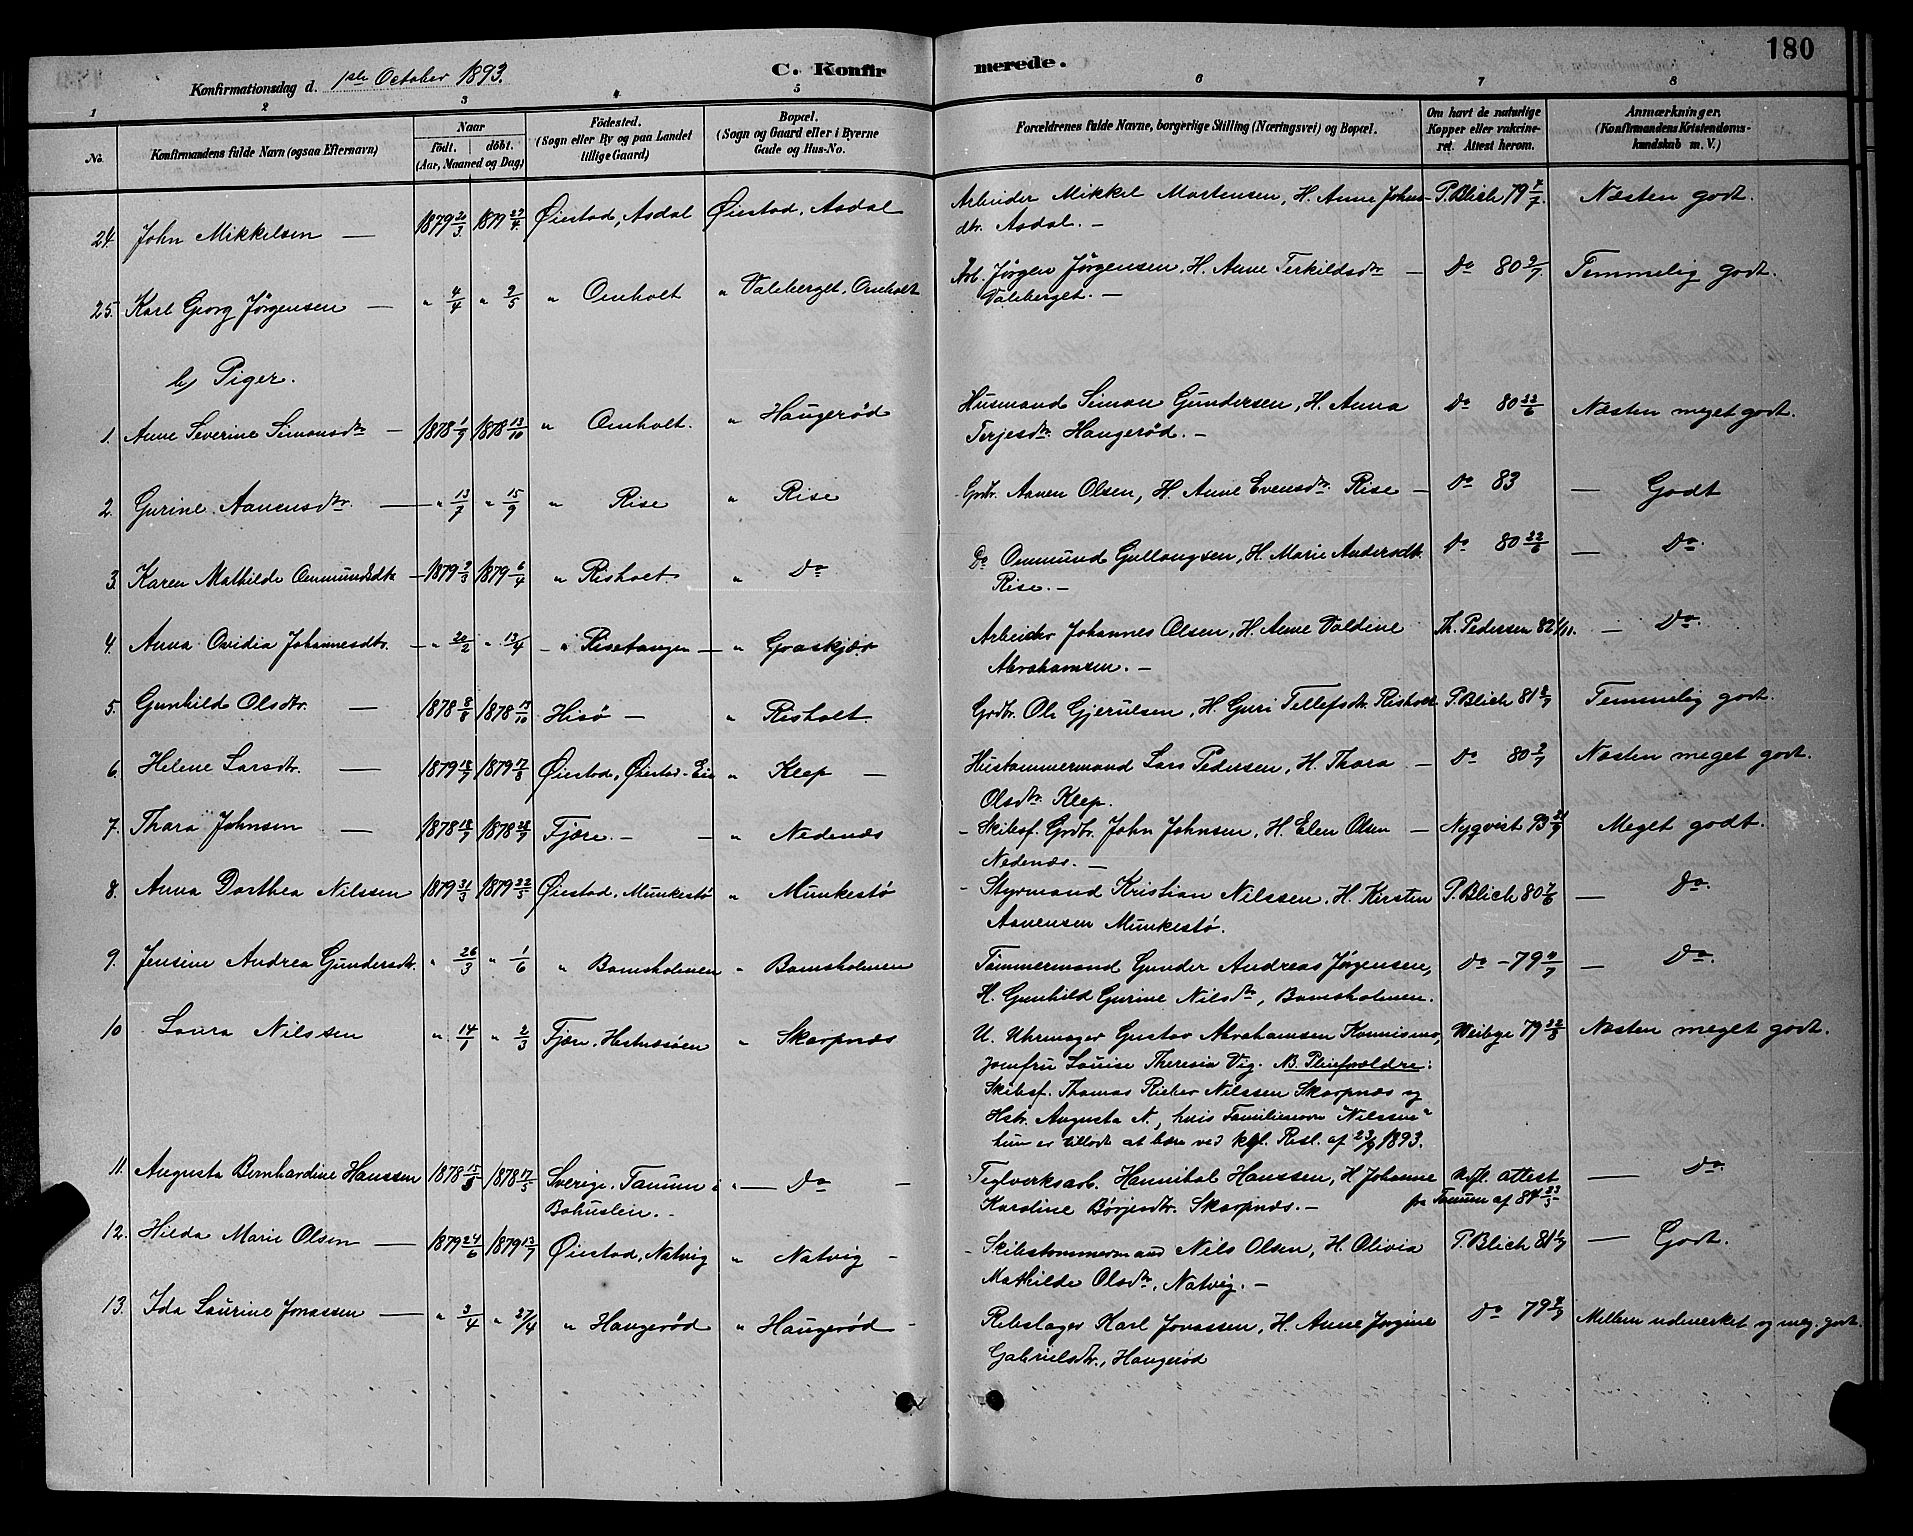 180
Konfirmationsdag d. 1ste October 1893.
C. Konfirmerede.
1 2 3 4 5 6 7 8
No.
Konfirmandens fulde Navn (ogsaa Efternavn)
Naar
födt. döbt.
(Aar, Maaned og Dag)
Födested.
(Sogn eller By og paa Landet
tillige Gaard)
Bopæl.
(Sogn og Gaard eller i Byerne
Gade og Hus-No.
Forældrenes fulde Navne, borgerlige Stilling (Næringsvei) og Bopæl.
Om havt de naturlige
Kopper eller vakcine-
ret. Attest herom.
Anmærkninger.
(Konfirmandens Kristendoms-
kundskab m. V.)
24. John Mikkelsen — 1879 20/3 1879 27/4 Øiestad, Asdal Øiestad, Asdal Arbeider Mikkel Mortensen, H. Anne Johns- P. Blich 79 4/7. Næsten godt.
dtr. Asdal. —
25. Karl Georg Jørgensen — " 4/4 " 2/5 " Omholt " Valeberget, Omholt Arb. Jørgen Jørgensen, H. Anne Terkildsdtr — Do 80 2/7 Temmelig godt.
Valeberget. —
b) Piger.
1. Anne Severine Simonsdtr — 1878 1/9 1878 13/10 " Omholt. " Haugerød Husmand Simon Gundersen, H. Anna Do 80 22/6 Næsten meget godt.
Terjesdtr. Haugerød. —
2. Gurine Aanensdtr. — " 13/7 " 15/9 " Rise " Rise Grdbr. Aanen Olsen, H. Anne Evensdtr Rise — Do 83 — Godt
3. Karen Mathilde Ommundsdtr — 1879 2/3 1879 6/4 " Risholt " Do Do Ommund Gullougsen, H. Marie Andersdtr. Do 80 22/6 — Do.
Rise. —
4. Anna Ovidia Johannesdtr. — " 20/2 " 13/4 — " Risetangen — " Graaskjær Arbeider Johannes Olsen, H. Anne Valdine Th. Pedersen 82 1/11. — Do.
Abrahamsen. —
5. Gunhild Olsdtr. — 1878 8/8 1878 17/10 Hisø — " Risholt Grdbr. Ole Gjerulsen, H. Guri Tellefsdtr. Risholt P. Blich 81 8/7 Temmelig godt.
6. Helene Larsdtr. — 1879 18/7 1879 17/8 Øiestad, Øiestad-Eie " Klep — Hustømmermand Lars Pedersen, H. Thora — Do 80 2/7 Næsten meget godt.
Olsdtr. Klep.
7. Thara Johnsen — 1878 18/7 1878 28/9 Fjære. — " Nedenæs — Skibsf. Grdbr. John Johnsen, H. Elen Olsen — Nyqvist 93 21/9 Meget godt.
Nedenæs. —
8. Anna Dorthea Nilssen 1879 21/3 1879 22/5 Øiestad, Munkestø " Munkestø — Styrmand Kristian Nilssen, H. Kirsten P. Blich 80 7/6 — Do.
Aanensen Munkestø.
9. Jensine Andrea Gundersdtr. " 26/3 " 1/6 " Bomsholmen " Bomsholmen Tømmermand Gunder Andreas Jørgensen, Do — 79 4/7 — Do.
H. Gunhild Gurine Nilsdtr, Bomsholmen.
10 Laura Nilssen " 14/1 " 2/3 Fjære, Hesnæsøen " Skarpnæs U. Uhrmager Gustav Abrahamsen Konnismo, Weibye 79 22/8 Næsten meget godt.
Jomfru Louise Theresia Vig. NB. Pleieforældre:
Skibsf. Thomas Rieber Nilssen Skarpnæs og
Hstr. Augusta N., hvis Familienavn "Nilssen"
hun er tilladt at bære ved kgl. Resl. af 23/9 1893.
11. Augusta Bernhardine Hanssen 1878 15/3 1878 17/5 Sverige, Tanum i " — Do — Teglverksarb. Hannibal Hanssen, H. Johanne Adfl. attest — Do
Bohuslen. — Karoline Børjesdtr. Skarpnæs. — fra Tanum af 84 23/5
12. Hilda Marie Olsen — 1879 24/6 1879 13/7 Øiestad, Natvig " Natvig — Skibstømmermand Nils Olsen, H. Olivia P. Blich 81 1/7 — Godt.
Mathilde Olsdtr, Natvig. —
13. Ida Laurine Jonassen — " 3/4 " 27/4 " Haugerød " Haugerød — Rebslager Karl Jonassen, H. Anne Jørgine Do 79 4/7 Mellem udmerket og meg. godt.
Gabrielsdtr., Haugerød